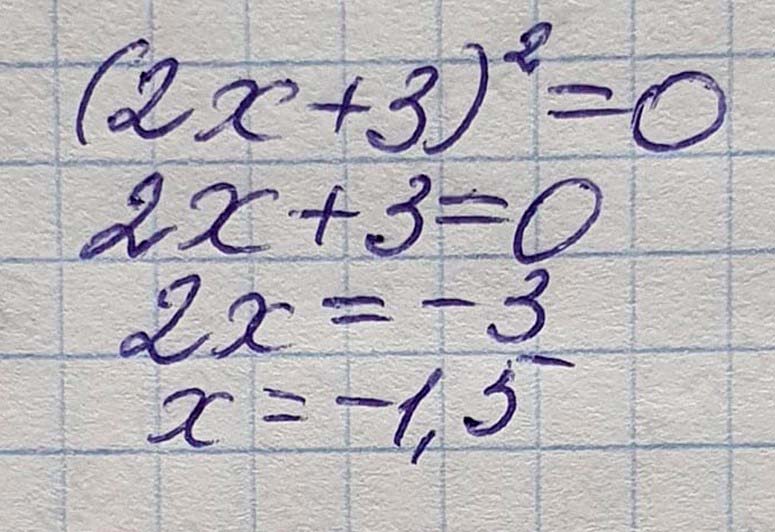 (2x+3)²=0
2x+3=0
2x=-3
x=-1,5